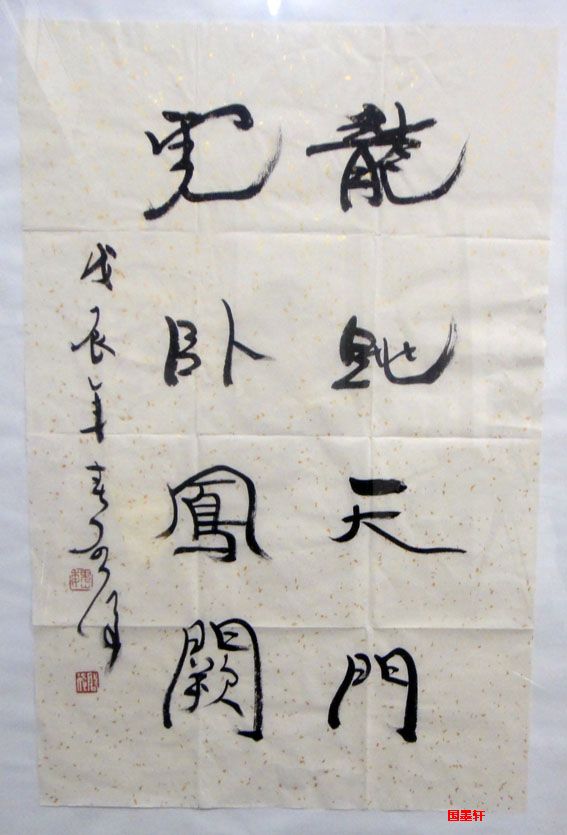 龍跳天門
虎卧鳳闕
戊辰年春
国墨轩